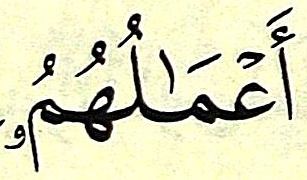 أَعۡمَٰلُهُمُۥ